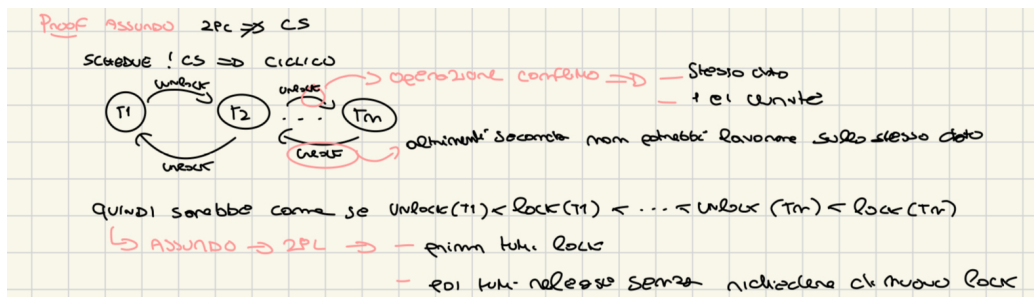 Proof ASSUNDO 2PL ⇏ CS
SCHEDULE ! CS => CICLICO
UNLOCK UNLOCK → OPERAZIONE CONFLITTO => — Stesso dato
T1 T2 . . . Tm — 1 è write
UNLOCK UNLOCK → altrimenti seconda non potrebbe lavorare sullo stesso dato
QUINDI sarebbe come se UNLOCK(T1) < lock(T1) < ... < UNLOCK (Tm) < lock(Tm)
↳ ASSUNDO → 2PL → — prima tutti lock
— poi tutti release senza richiedere di nuovo lock